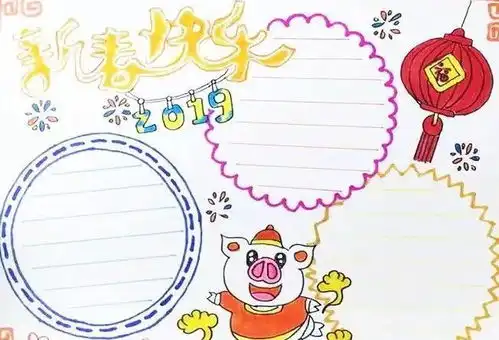 新春快乐
2019
福